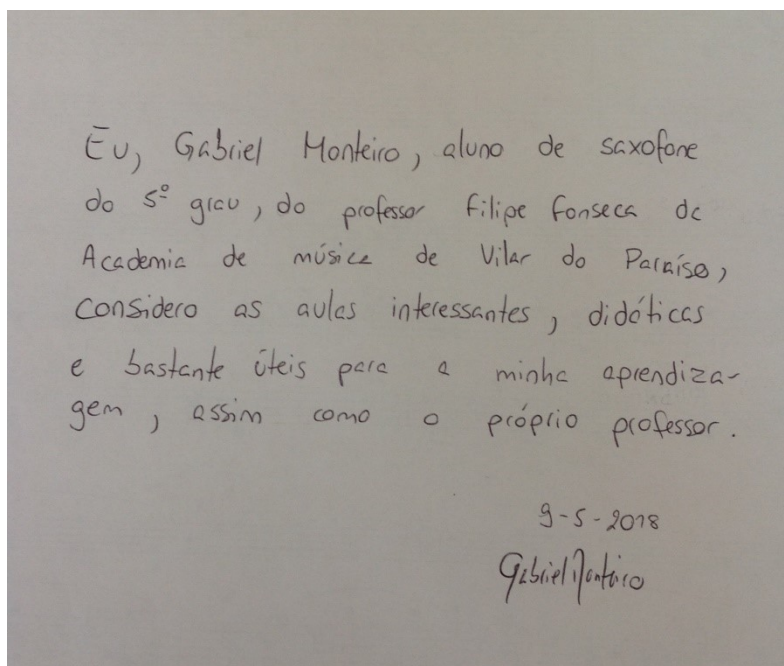 Eu, Gabriel Monteiro, aluno de saxofone
do 5º grau, do professor Filipe Fonseca da
Academia de música de Vilar do Paraíso,
considero as aulas interessantes, didáticas
e bastante úteis para a minha aprendiza-
gem, assim como o próprio professor.
9-5-2018
Gabriel Monteiro